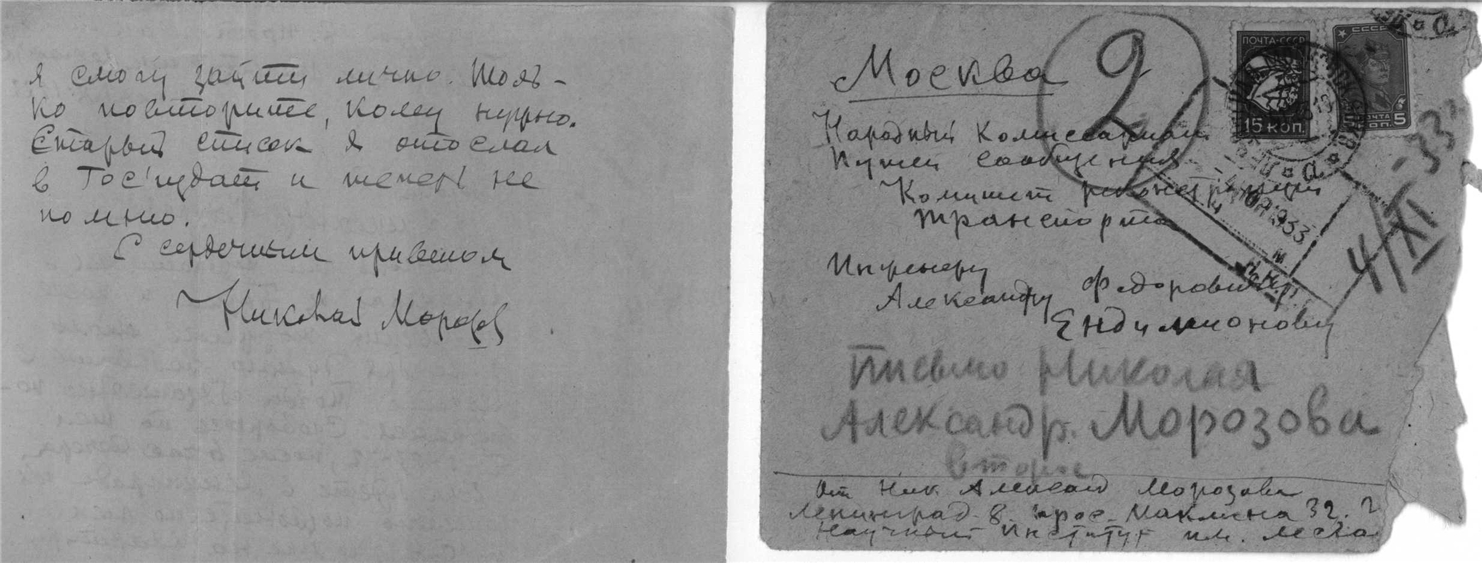 я смогу зайти лично. Толь-
ко повторите, кому нужно.
Старый список я отослал
в Гос'издат и теперь не
помню.
С сердечным приветом
Николай Морозов
2
Москва
Народный Комиссариат
Путей сообщения
Комитет реконструкции
транспорта
Инженеру
Александру Федоровичу
Ендимионову
ПОЧТА-СССР
15 КОП.
СССР
ПОЧТА
КОП. 5
1933
4/XI -33
Письмо Николая
Александр. Морозова
второе
От Ник Александ Морозова
Ленинград 8. прос. Маклина 32.
Научный Институт им. Лесга